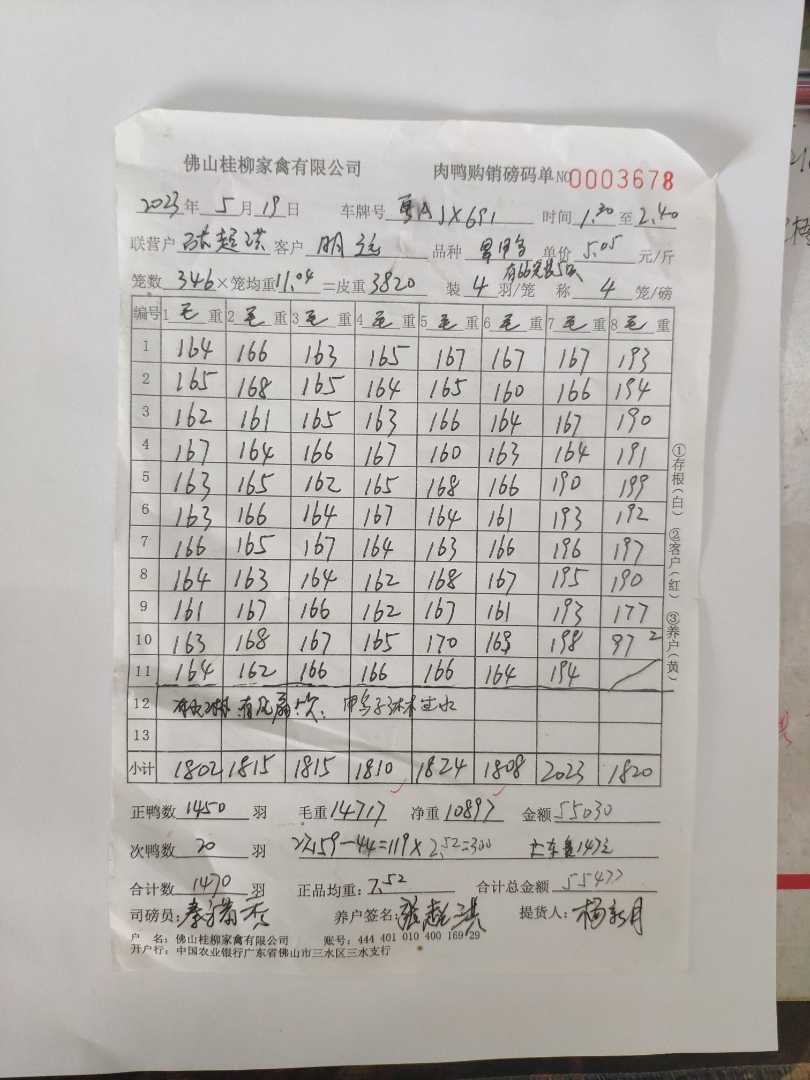 佛山桂柳家禽有限公司 肉鸭购销磅码单 NO 0003678
2023年 5月19日 车牌号 粤AJX691 时间 1.30 至 2.40
联营户 张超洪 客户 明 品种 单价 5.05 元/斤
笼数 346×笼均重11.04=皮重3820 装 4 羽/笼 称 4 笼/磅
编号 1 毛 重 2 毛 重 3 毛 重 4 毛 重 5 毛 重 6 毛 重 7 毛 重 8 毛 重
1 164 166 163 165 167 167 167 193
2 165 168 165 164 165 160 166 194
3 162 161 165 163 166 164 167 190
4 167 164 166 167 160 163 164 191
5 163 165 162 165 168 166 190 199
6 163 166 164 167 164 161 193 192
7 166 165 167 164 163 166 196 197
8 164 163 164 162 168 167 195 190
9 161 167 166 162 167 161 193 177
10 163 168 167 165 170 169 198 97 2
11 164 162 166 166 166 164 194
12
13
小计 1802 1815 1815 1810 1824 1808 2023 1820
正鸭数 1450 羽 毛重 14717 净重 10897 金额 55030
次鸭数 20 羽 159-44=119×2.52=300
合计数 1470 羽 正品均重: 7.52 合计总金额
司磅员: 养户签名: 张超洪 提货人: 杨新月
户 名: 佛山桂柳家禽有限公司 账号: 444 401 010 400 169 29
开户行: 中国农业银行广东省佛山市三水区三水支行
①存根(白) ②客户(红) ③养户(黄)